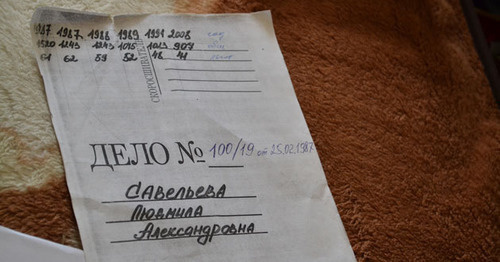 1987 1987 1988 1989 1991 2008
1520 1243 1243 1015 1013 907
61 62 59 52 46 41
СКОРОСШИВАТЕЛЬ
ДЕЛО № 100/19 от 25.02.1987
САВЕЛЬЕВА
Людмила
Александровна